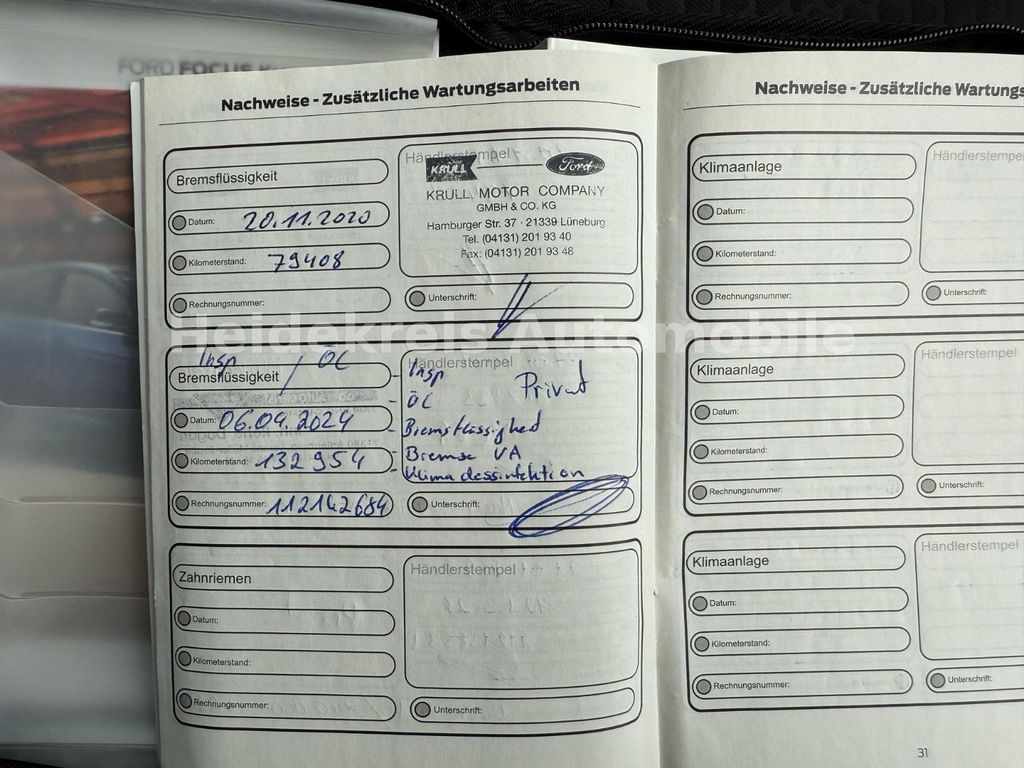 FORD FOCUS
Nachweise - Zusätzliche Wartungsarbeiten
Bremsflüssigkeit
Datum: 20.11.2020
Kilometerstand: 79408
Rechnungsnummer:
Händlerstempel
KRULL
Ford
KRULL MOTOR COMPANY
GMBH & CO. KG
Hamburger Str. 37 · 21339 Lüneburg
Tel. (04131) 201 93 40
Fax: (04131) 201 93 48
Unterschrift:
Heidekreis Automobile
Insp / ÖL
Bremsflüssigkeit
Datum: 06.09.2024
Kilometerstand: 132954
Rechnungsnummer: 112142684
Händlerstempel
- Insp
Privat
- ÖL
- Bremsflüssighed
- Bremse VA
- Klima dessinfektion
Unterschrift:
Zahnriemen
Datum:
Kilometerstand:
Rechnungsnummer:
Händlerstempel
Unterschrift:
Nachweise - Zusätzliche Wartungs
Klimaanlage
Datum:
Kilometerstand:
Rechnungsnummer:
Händlerstempe
Unterschrift:
Klimaanlage
Datum:
Kilometerstand:
Rechnungsnummer:
Händlerstempel
Unterschrift:
Klimaanlage
Datum:
Kilometerstand:
Rechnungsnummer:
Händlerstempel
Unterschrift:
31